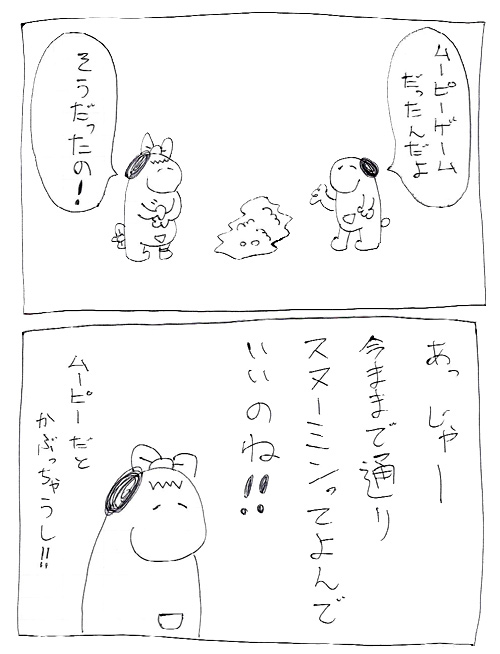 ムーピーゲーム
だったんだよ
そうだったの!
あっ じゃー
今ままで通り
スヌーミンってよんで
いいのね!!
ムーピーだと
かぶっちゃうし!!